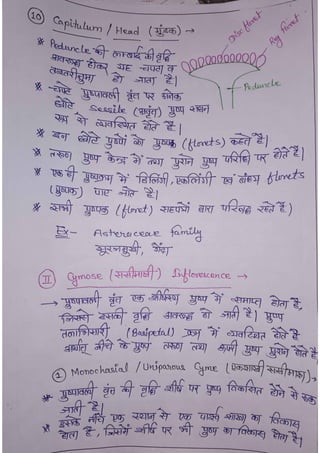 ⑩ Capitulum / Head (मुंडक) →
Disc floret
Ray floret
* Peduncle की लम्बाई की वृद्धि
अवरुद्ध होकर यह चपटा व
तश्तरीनुमा हो जाता है।
Peduncle
* चपटे पुष्पावली वृंत पर अनेक
छोटे Sessile (अवृंत) पुष्प सघन
रूप से व्यवस्थित होते हैं।
* इन छोटे पुष्पों को पुष्पक (florets) कहते हैं।
* तरुण पुष्प केन्द्र में तथा पुराने पुष्प परिधि पर होते हैं।
* एक ही पुष्पक्रम में द्विलिंगी, एकलिंगी एवं florets
(पुष्पक) पाए जाते हैं।
* सभी पुष्पक (floret) सहपत्रों द्वारा परिबद्ध रहते हैं)
Ex- Asteraceae family
सूरजमुखी, गेंदा
Ⅱ Cymose (ससीमाक्षी) Inflorescence →
→ पुष्पावली वृंत एक शीर्षस्थ पुष्प में समाप्त होता है,
जिससे इसकी वृद्धि अवरुद्ध हो जाती है। पुष्प
तलाभिसारी (Basipetal) क्रम में व्यवस्थित होते हैं
अर्थात् नीचे के पुष्प तरुण तथा ऊपरी पुष्प पुराने होते हैं
① Monochasial / Uniparous Cyme (एकशाखी ससीमाक्ष) →
* पुष्पावली वृंत की वृद्धि शीर्ष पर पुष्प विकसित होने से रुक
जाती है।
* इसके नीचे एक स्थान से एक पार्श्व शाखा का विकास
होता है, जिसमें शीर्ष पर भी पुष्प का विकास होता है।